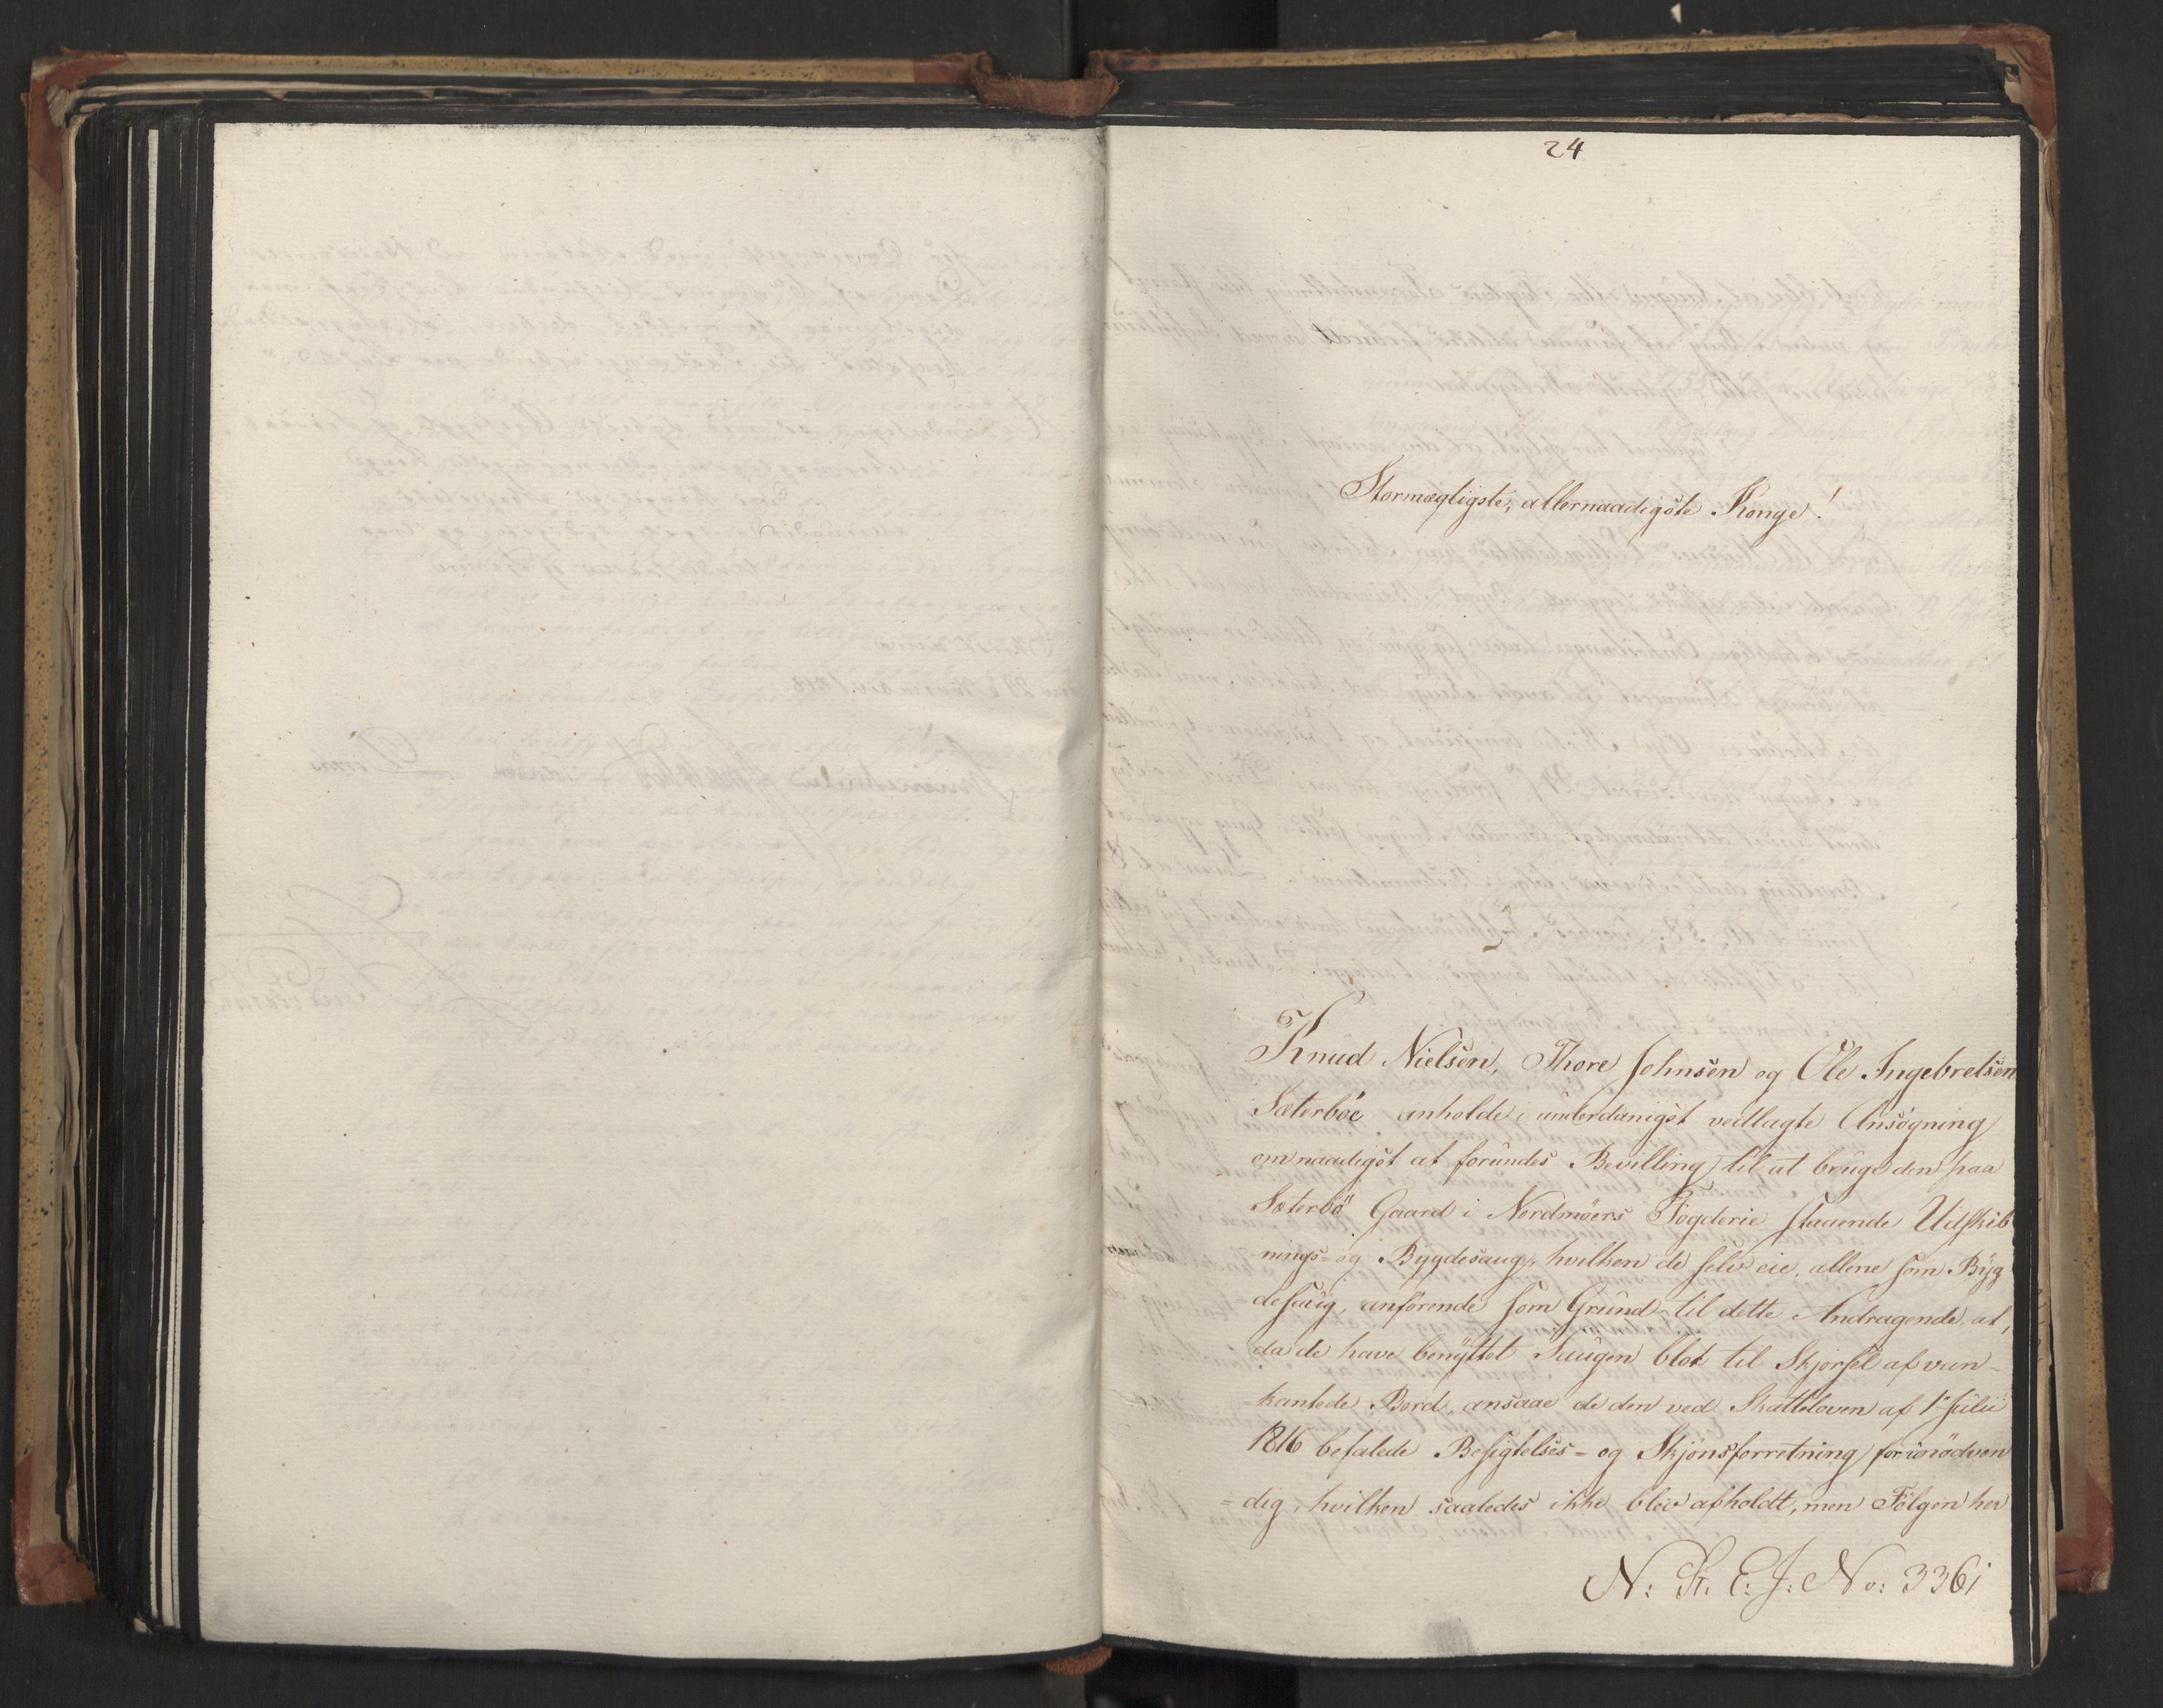 24
Stormægtigste, allernaadigste Konge!
Knud Nielsen, Thore Johnsen og Ole Ingebretsen
Sæterböe anholde i underdanigst vedlagte Ansögning
om naadigst at forundes Bevilling til at bruge den paa
Sæterbö Gaard i Nordmöers Fogderie staaende Udskib
nings- og Bygdesaug, hvilken de selv eie, allene som Byg
desaug, anförende som Grund til dette Andragende, at,
da de have benyttet Saugen blot til Skjørsel af van-
kantede Bord, ansaae de den ved Skatteloven af 1ste Julii
1816 befalede Besigtelses- og Skjönsforretning for unödven
-dig, hvilken saaledes ikke blev afholdt, men Fölgen her
N: St. E: J: No: 3361